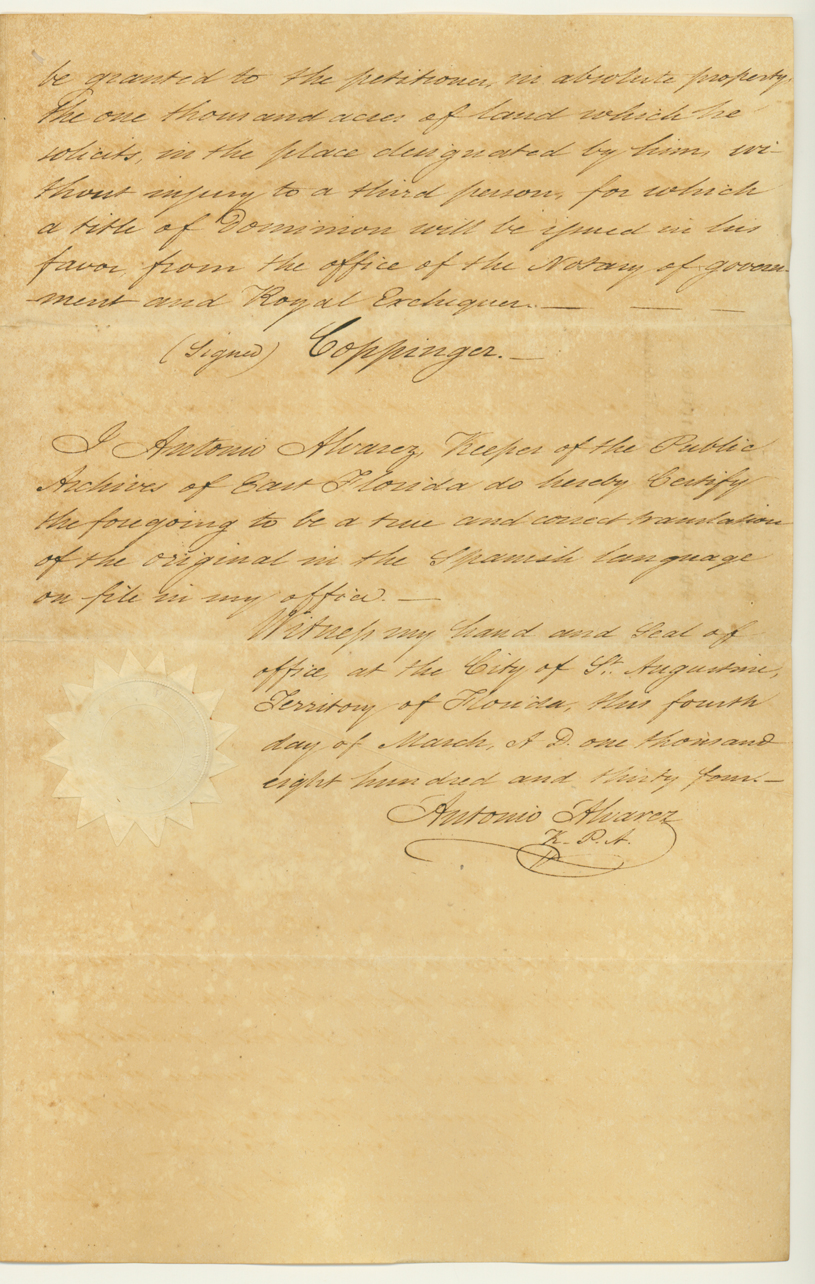 be granted to the petitioner, in absolute property.
the one thousand acres of land which he
solicits, in the place designated by him, wi-
thout injury to a third person, for which
a title of Dominion will be issued in his
favor from the office of the Notary of govern-
-ment and Royal Exchequer. —
(Signed) Coppinger. —
I Antonio Alvarez, Keeper of the Public
Archives of East Florida do hereby Certify
the foregoing to be a true and correct translation
of the original in the Spanish language
on file in my office. —
Witness my hand and Seal of
office, at the City of St. Augustine,
Territory of Florida, this fourth
day of March, A D. one thousand
eight hundred and thirty four. —
Antonio Alvarez
K. P. A.